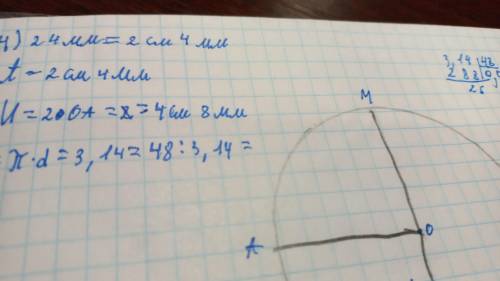 24мм=2см 4мм
t-2см 4мм
И=2•OA=2=4см 8мм
π·d=3,14=48:3,14=
3,14 48
288 0,
26
M
O
A